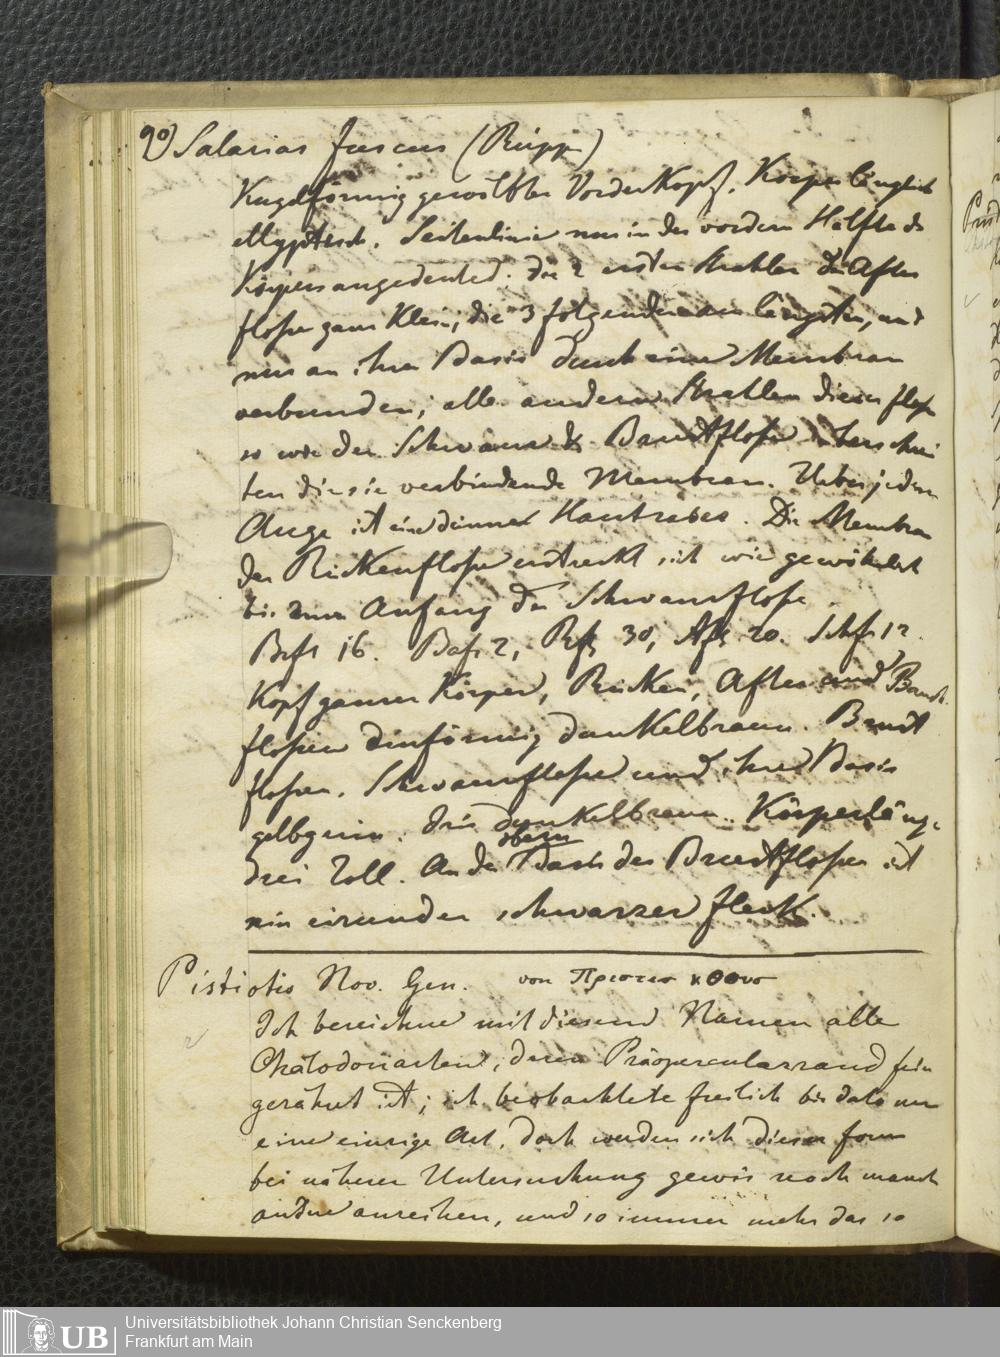 90) Salarias fuscus (Rüpp)
Kugelförmig gewölbter Vorderkopf. Körper länglich
elliptisch. Seitenlinie nur in der vordern Hälfte des
Körpers angedeuted. die 2 ersten Strahlen der After
flosse ganz klein; die 3 folgenden am längsten, und
nur an ihrer Basis durch eine Membran
verbunden; alle andern Strahlen dieser flosse
so wie der Schwanz & Brustflosse überschrei
ten die sie verbindende Membran. Ueber jedem
Auge ist eine dünner Hautfaser. Die Membran
der Rückenflosse erstreckt sich wie gewöhnlich
bis zum Anfang der Schwanzflosse.
Brfl 16. Bafl 2, Rfl 30, Afl 20. Schfl 12.
Kopf ganzer Körper, Rücken, After und Bauch
flossen einförmig dunkelbraun. Brust
flossen, Schwanzflosse und ihre Basis
gelbgrün. Iris dunkelbraun. Körperlänge
drei Zoll. An der obern Basis der Brustflossen ist
ein eirunder schwarzer fleck.
Pristiotis Nov. Gen. von
Ich bezeichne mit diesem Namen alle
Chätodonarten, deren Präopercularrand fein
gezähnt ist; ich beobachtete freilich bis dato nur
eine einzige Art, doch werden sich dieser form
bei näherer Untersuchung gewis noch manch
andere anreihen, und so immer mehr das so
Universitätsbibliothek Johann Christian Senckenberg
Frankfurt am Main
UB